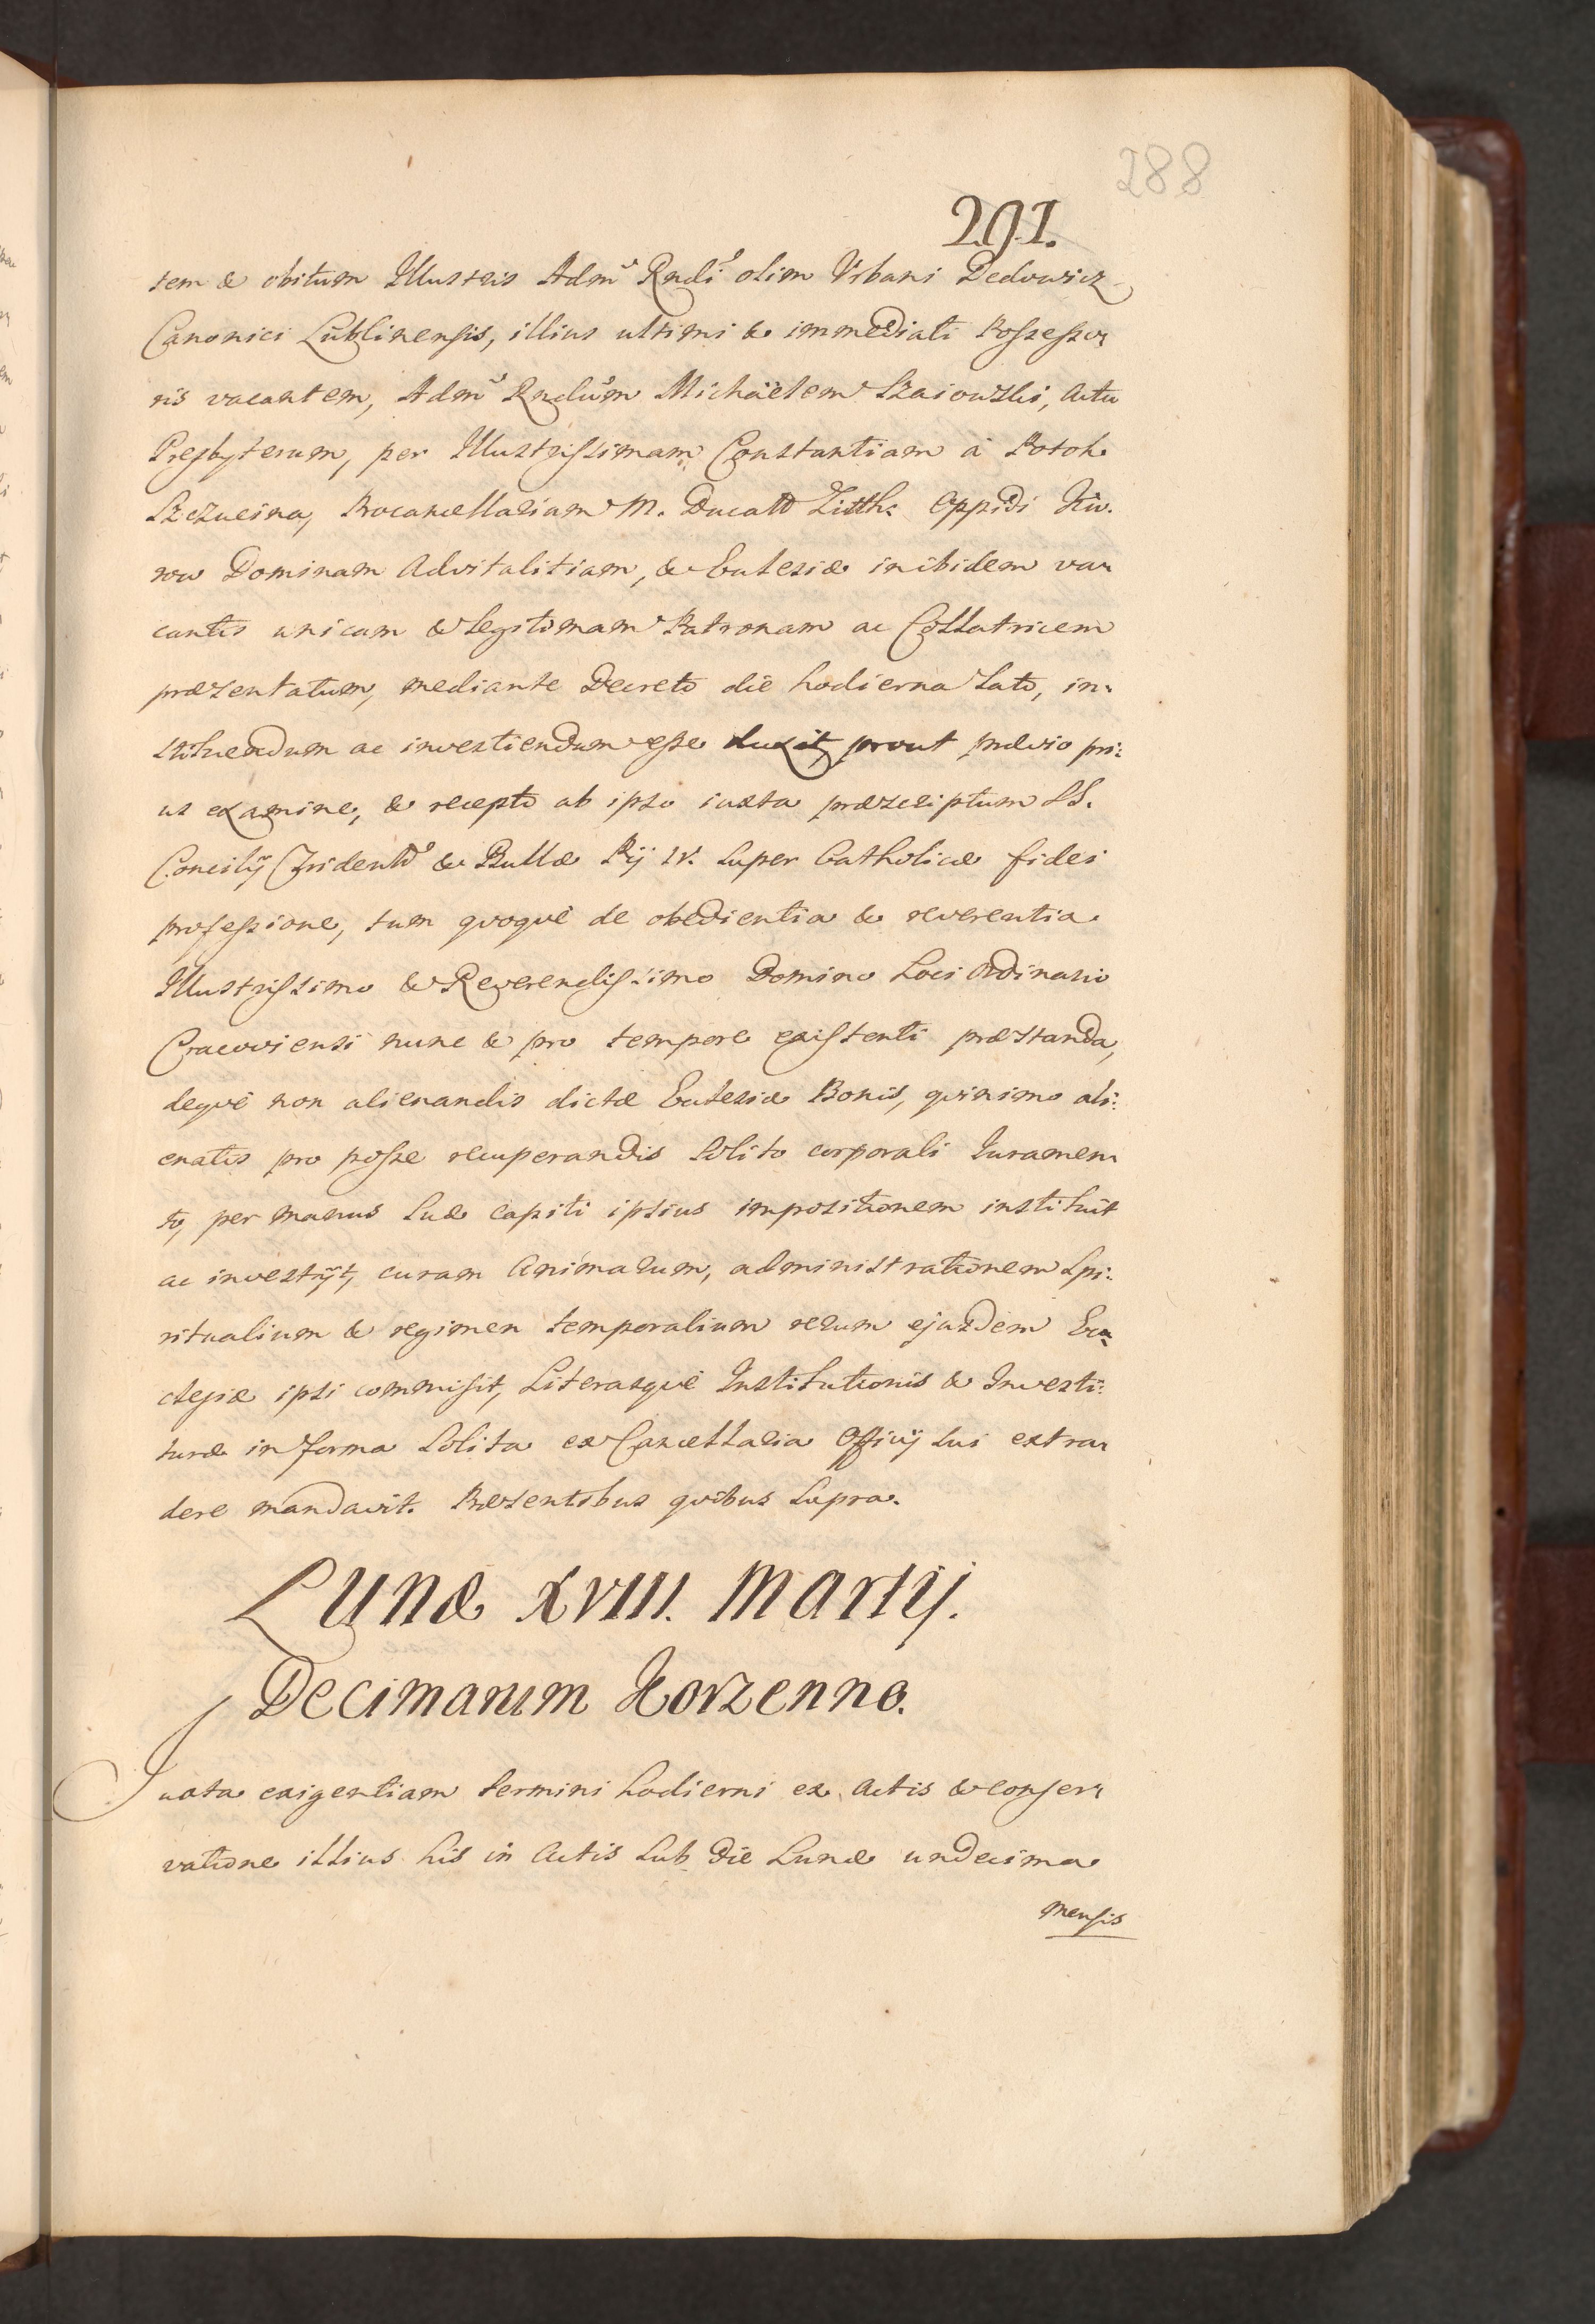 288
291.
tem & obitum Illustris Adm̃ Rndi olim Urbani Dedowicz
Canonici Lublinensis, illius ultimi & immediati Possesso-
ris vacantem, Adm̃ Rndum Michaëlem Szaiowski, Actu
Presbyterum, per Illustrissimam Constantiam à Potok
Szczucina, Procancellariam M. Ducatũ Litth: Oppidi Ku-
row Dominam Advitalitiam, & Ecclesiæ inibidem va-
cantis unicam & legitimam Patronam ac Collatricem
præsentatum, mediante Decreto die hodierna lato, in-
stituendum ac investiendum esse duxit, prout prævio pri-
us examine, & recepto ab ipso iuxta præscriptum SS.
Concilÿ Tridentĩ & Bullæ Pÿ IV. super Catholicæ fidei
professione, tum quoquè de obedientia & reverentia
Illustrissimo & Reverendissimo Domino Loci Ordinario
Cracoviensi nunc & pro tempore existenti præstanda,
dequè non alienandis dictæ Ecclesiæ Bonis, quinimo ali-
enatis pro posse recuperandis solito corporali Juramen-
to, per manus suæ capiti ipsius impositionem instituit
ac investÿt, curam Animarum, administrationem Spi-
ritualium & regimen temporalium rerum ejusdem Ec-
clesiæ ipsi commisit, Literasquè Institutionis & Investi-
turæ in forma solita ex Cancellaria Officÿ sui extra-
dere mandavit. Præsentibus quibus supra.
Lunæ XVIII. Martÿ.
Decimarum Korzenno.
Juxta exigentiam termini hodierni ex Actis & conser-
vatione illius his in Actis sub die Lunæ undecima
mensis